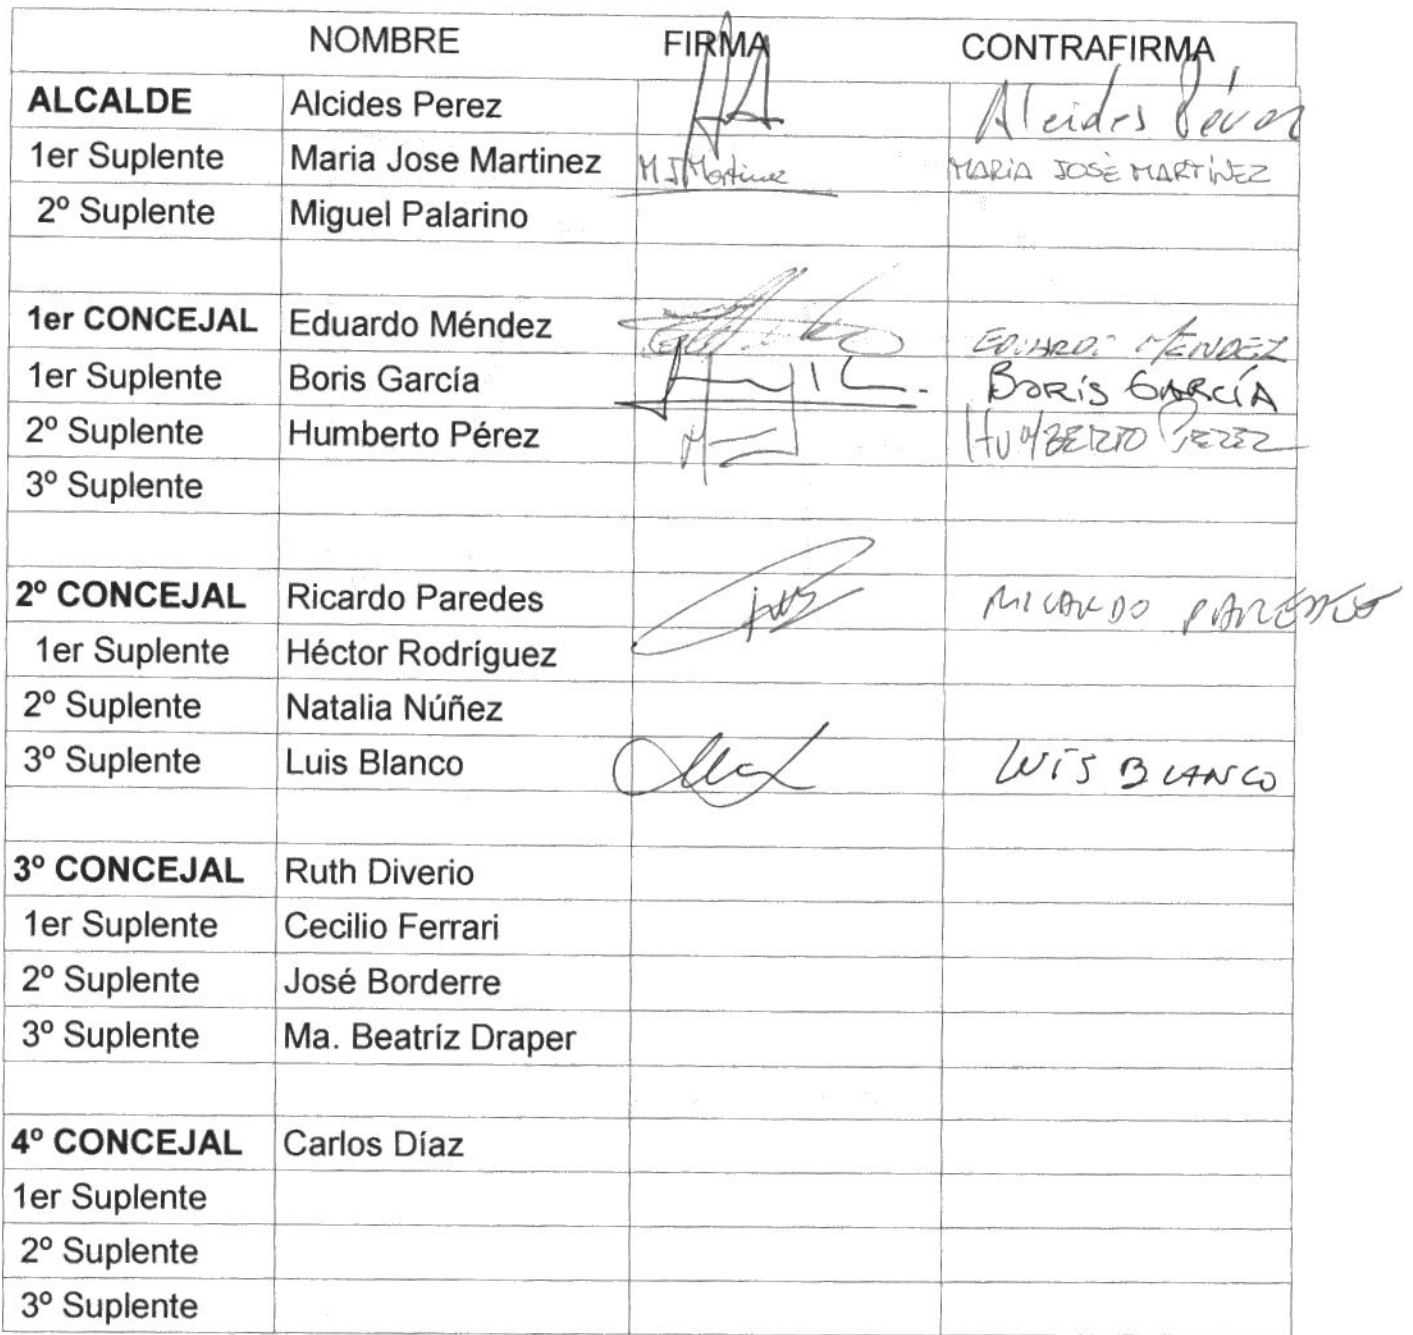 NOMBRE FIRMA CONTRAFIRMA
ALCALDE Alcides Perez Alcides Pérez
1er Suplente Maria Jose Martinez MJMartinez MARÍA JOSÉ MARTÍNEZ
2º Suplente Miguel Palarino
1er CONCEJAL Eduardo Méndez EDUARDO MÉNDEZ
1er Suplente Boris García BORIS GARCÍA
2º Suplente Humberto Pérez HUMBERTO PEREZ
3º Suplente
2º CONCEJAL Ricardo Paredes RICARDO PAREDES
1er Suplente Héctor Rodríguez
2º Suplente Natalia Núñez
3º Suplente Luis Blanco LUIS BLANCO
3º CONCEJAL Ruth Diverio
1er Suplente Cecilio Ferrari
2º Suplente José Borderre
3º Suplente Ma. Beatríz Draper
4º CONCEJAL Carlos Díaz
1er Suplente
2º Suplente
3º Suplente